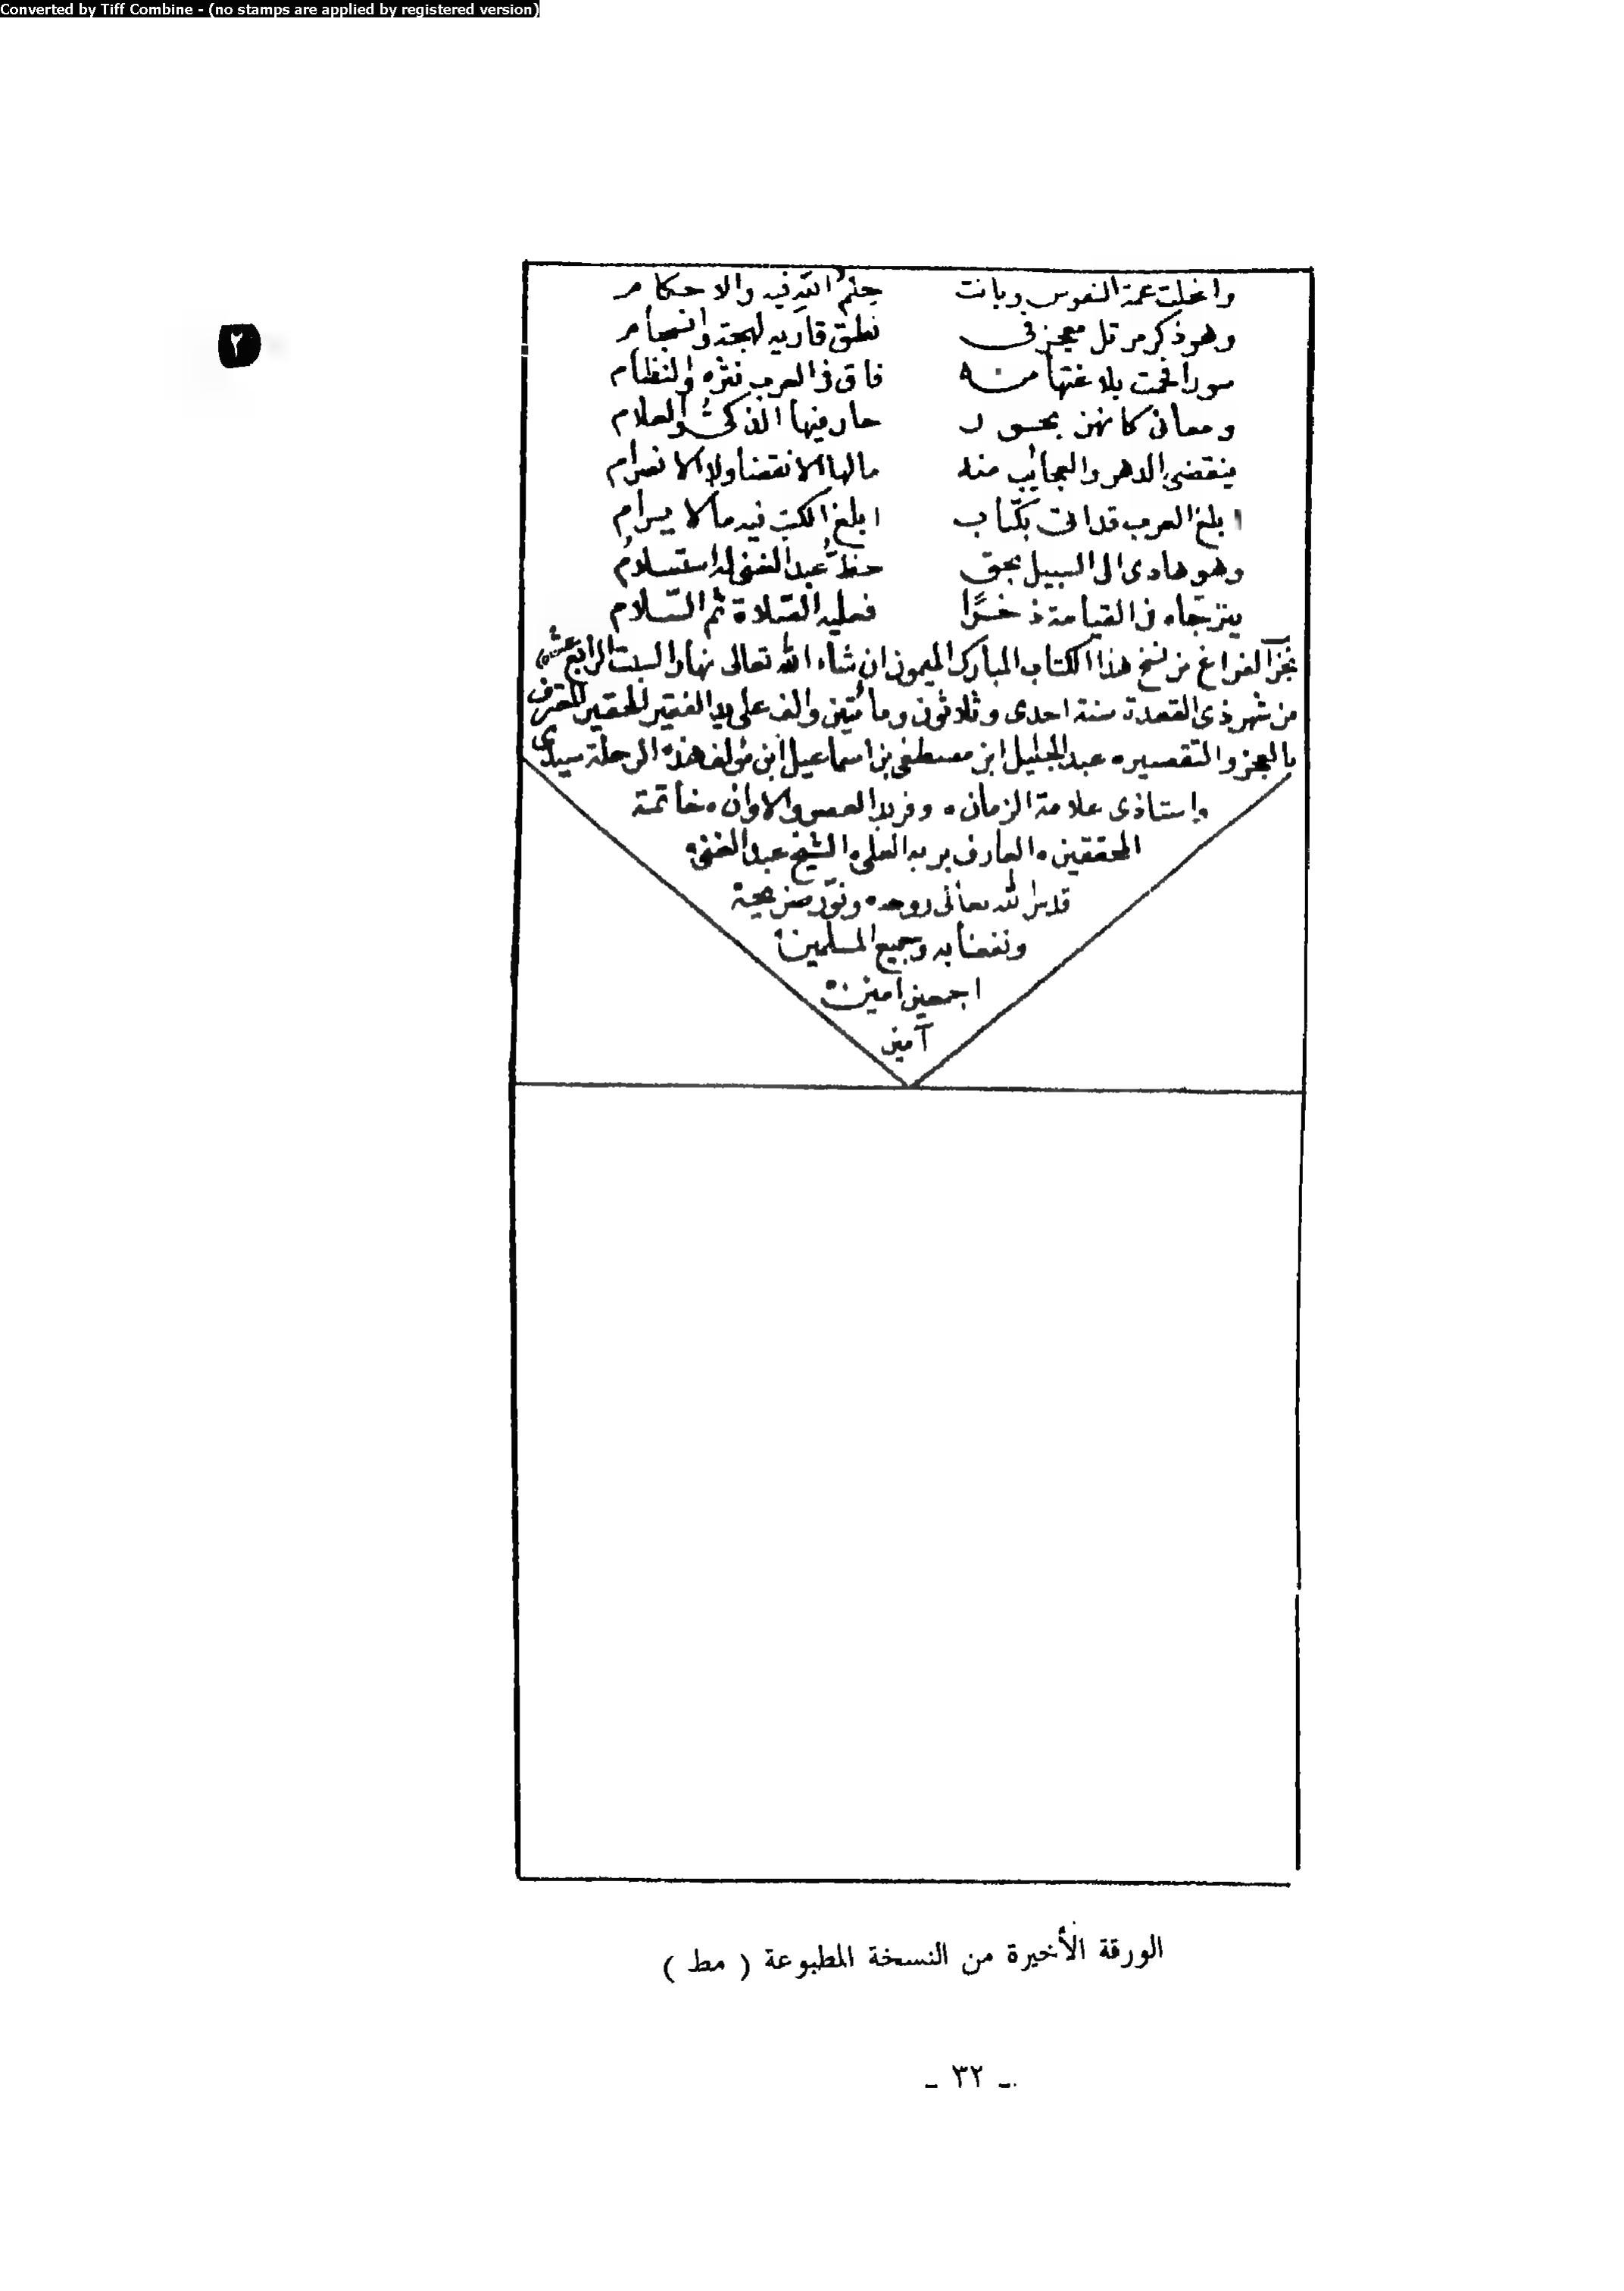 Converted by Tiff Combine - (no stamps are applied by registered version)
٢
وانجلت غمة النفوس وبانت حكم الله فيه والاحكام
وهو ذكر مرتل معجز في نطق قاريه لهجة وانسجام
سورا فخمت بلاغتها منه فاق في العرب نثره والنظام
ومعاني كانهن بحور حار فيها الذكي والعلام
ينقضي الدهر والعجائب منه مالها الانقضا ولا الانصرام
ابلغ العرب قد اتى بكتاب ابلغ الكتب فيه مالا يرام
وهو هادى الى السبيل بحق حفظ عبد الغني له استسلام
يترجاه في القيامة ذخرًا فعليه الصلاة ثم السلام
نجز الفراغ من نسخ هذا الكتاب المبارك الميمون ان شاء الله تعالى نهار السبت الرابع عشر
من شهر ذي القعدة سنة احدى وثلاثون ومائتين والف على يد الفقير الحقير المعترف
بالعجز والتقصير ٠ عبد الجليل ابن مصطفى بن اسماعيل ابن مؤلف هذه الرحلة سيدي
واستاذى علامة الزمان ٠ وفريد العصر والاوان ٠ خاتمة
المحققين ٠ العارف بربه العلي ٠ الشيخ عبد الغني ٠
قدس الله تعالى روحه ٠ ونور ضريحه
ونفعنا به وجميع المسلمين
اجمعين امين
آمين
الورقة الأخيرة من النسخة المطبوعة ( مط )
ـ ٣٢ ـ